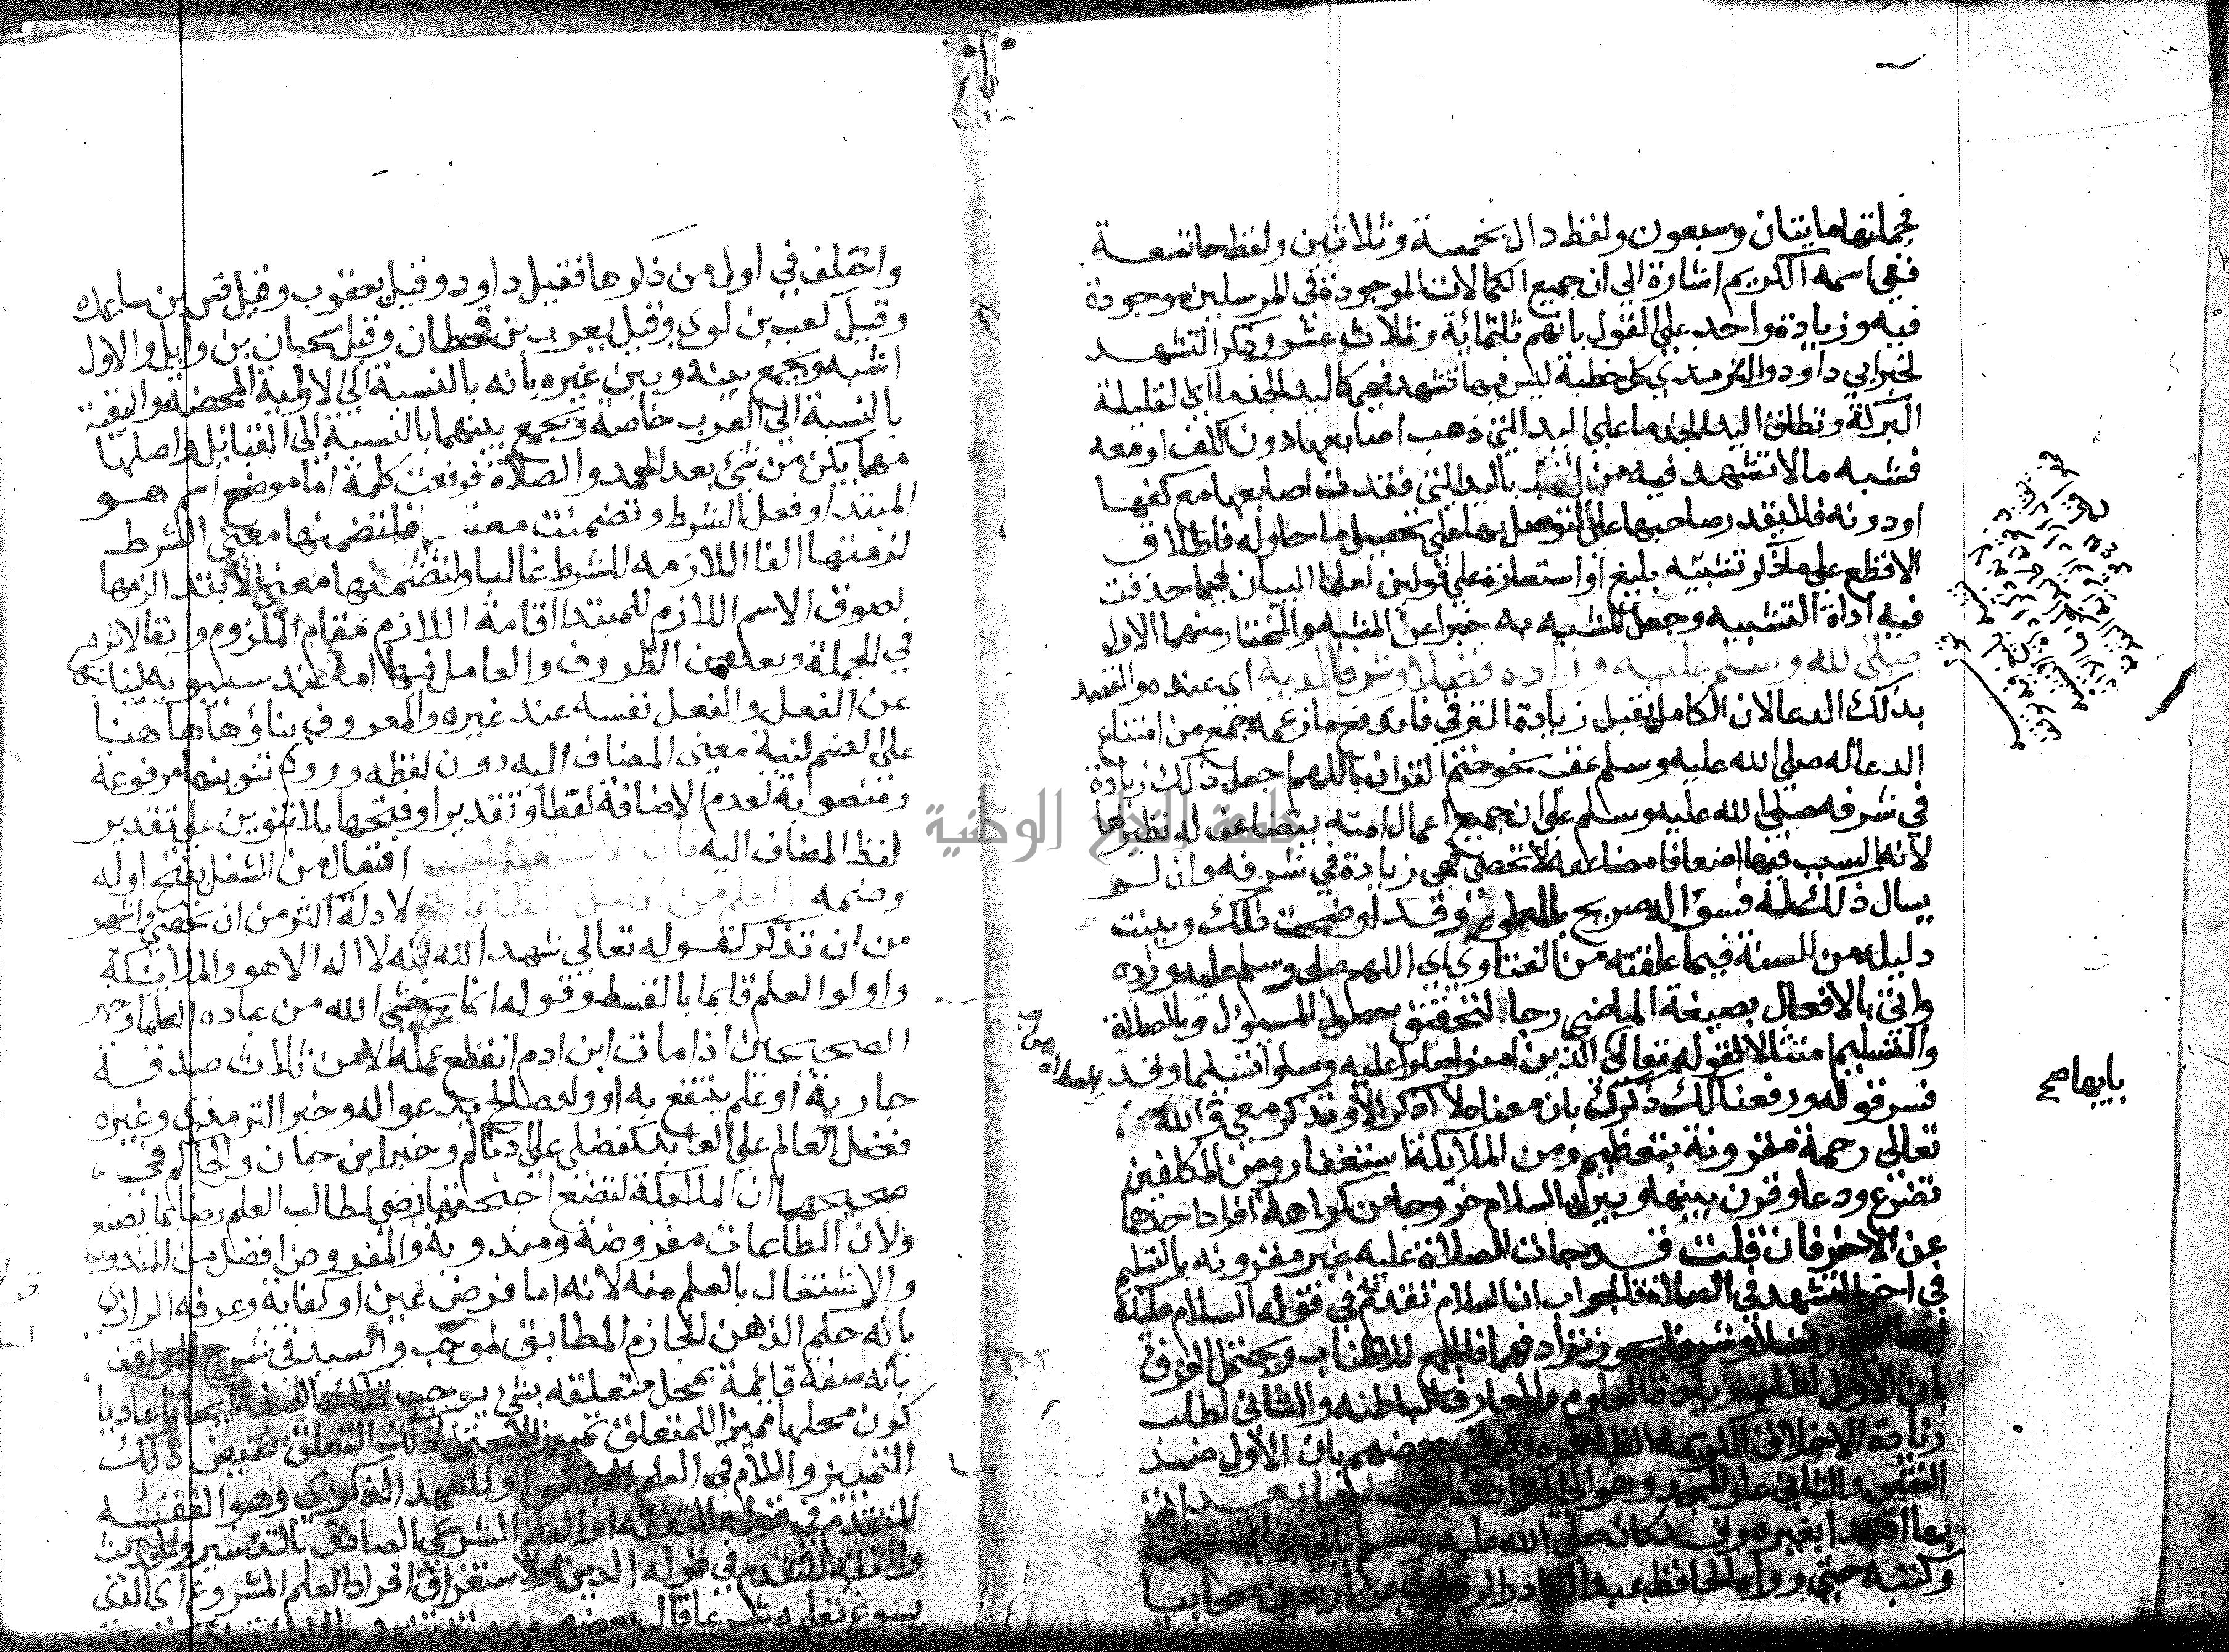 فجملتها مايتان وسبعون ولفظ دال بخمسة وثلاثين ولفظ حا تسعة
ففي اسمه الكريم اشارة الي ان جميع الكمالات الموجودة في المرسلين موجودة
فيه وزيادة واحد علي القول بانهم ثلثمائة وثلاث عشر وذكر التشهد
لخبر ابي داود والترمذي كل خطبة ليس فيها تشهد فهي كاليد الجذما اي القليلة
البركة وتطلق اليد الجذما علي اليد التي ذهب اصابعها دون الكف او معه
فشبه مالا تشهد فيه من باليد التي فقدت اصابعها مع كفها
او دونه فلا يقدر صاحبها علي التوصل بها علي تحصيل ما حاوله فاطلاق
الاقطع علي ما ذكر تشبيه بليغ او استعارة علي قولين لعلما البيان فيما حذفت
فيه اداة التشبيه وجعل المشبه به خبرا عن المشبه والمختار منهما الاول
صلي الله وسلم عليه وزاده فضلا وشرفا لديه اي عنده والقصد
بذلك الدعا لان الكامل يقبل زيادة الترقي فاندفع ما زعمه جمع من امتناع
الدعا له صلي الله عليه وسلم عقب نحو ختم القران باللهم اجعل ذلك زيادة
في شرفه صلي الله عليه وسلم علي ان جميع اعمال امته يتضاعف له نظيرها
لانه السبب فيها اضعافا مضاعفة لا تحصي فهي زيادة في شرفه وان لم
يسال ذلك له فسؤاله صريح بالمعلوم وقد اوضحت ذلك وبينت
دليله من السنة فيما علقته من الفتاوي اي اللهم صلي وسلم عليه وزده
واتي بالافعال بصيغة الماضي رجا لتحقق حصول المسؤل وبالصلاة
والتسليم امتثالا لقوله تعالي الذين امنوا صلوا عليه وسلموا تسليما وقد
فسر قوله ورفعنا لك ذكرك بان معناه لا اذكر الا وتذكر معي
تعالي رحمة مقرونة بتعظيم ومن الملايكة استغفار ومن المكلفين
تضرع ودعا وقرن بينها وبين السلام خروجا من كراهة افراد احدهما
عن الاخر فان قلت قد جات الصلاة عليه غير مقرونة بالتسليم
في اخر التشهد في الصلاة فالجواب ان السلام تقدم في قوله السلام عليك
ايها النبي وفضلا وشرفا ترادفهما فالجمع للاطناب ويحتمل الفرق
بان الاول لطلب زيادة العلوم والمعارف الباطنه والثاني لطلب
زيادة الاخلاق الكريمه الظاهره بعضهم بان الاول ضد
النقص والثاني علو المجد وهو الي الترادف اما بعد اتي
بها اقتدا بغيره وقد كان صلي الله عليه وسلم ياتي بها في
وكتبه حتي رواه الحافظ عبد القادر الرهاوي عن اربعين صحابيا
يايها صح
واختلف في اول من ذكرها فقيل داود وقيل يعقوب وقيل قس بن ساعده
وقيل كعب بن لوي وقيل يعرب بن قحطان وقيل سحبان بن وايل والاول
اشبه ويجمع بينه وبين غيره بانه بالنسبة الي الاولية المحضة والبقية
بالنسبة الي العرب خاصة ويجمع بينهما بالنسبة الي القبائل واصلها
مهما يكن من شئ بعد الحمد والصلاة فوقعت كلمة اما موضع اسم هو
المبتدا وفعل الشرط وتضمنت فلتضمنها معني الشرط
لزمتها الفا اللازمة للشرط غالبا ولتضمنها معني الابتدا لزمها
لصوق الاسم اللازم للمبتدا اقامة اللازم مقام الملزوم وابقا لاثره
في الجملة وبعد من الظروف والعامل فيها اما عند سيبويه لنيابتها
عن الفعل والفعل نفسه عند غيره والمعروف بناؤها هنا
علي الضم لنية معني المضاف اليه دون لفظه وروي تنوينها مرفوعة
ومنصوبة لعدم الاضافة لفظا وتقديرا وفتحها بلا تنوين علي تقدير
لفظ المضاف اليه فان الاشتغال افتعال من الشغل بفتح اوله
وضمه بالعلم من افضل الطاعات لادلة اكثر من ان تحصي واشهر
من ان تذكر كقوله تعالي شهد الله انه لا اله الا هو والملائكة
واولوا العلم قايما بالقسط وقوله انما يخشي الله من عباده العلما وخبر
الصحيحين اذا مات ابن ادم انقطع عمله الا من ثلاث صدقة
جارية او علم ينتفع به او ولد صالح يدعوا له وخبر الترمذي وغيره
فضل العالم علي العابد كفضلي علي ادناكم وخبر ابن حبان والحاكم في
صحيحهما ان الملائكة لتضع اجنحتها رضي لطالب العلم رضا بما يصنع
ولان الطاعات مفروضة ومندوبة والمفروض افضل من المندوب
والاشتغال بالعلم منه لانه اما فرض عين او كفاية وعرفه الرازي
بانه حكم الذهن الجازم المطابق لموجب والسيد في شرح المواقف
بانه صفة قائمة بمحل متعلقه بشئ توجب تلك الصفة ايجابا عاديا
كون محلها مميزا للمتعلق تمييزا لا يحتمل ذلك التعلق نقيض ذلك
التمييز واللام في العلم للجنس او للعهد الذكري وهو الفقه
المتقدم في قوله للتفقه او العلم الشرعي الصادق بالتفسير والحديث
والفقه المتقدم في قوله الدين او لاستغراق افراد العلم المشروع اي الذي
يسوغ تعلمه شرعا قال بعضهم